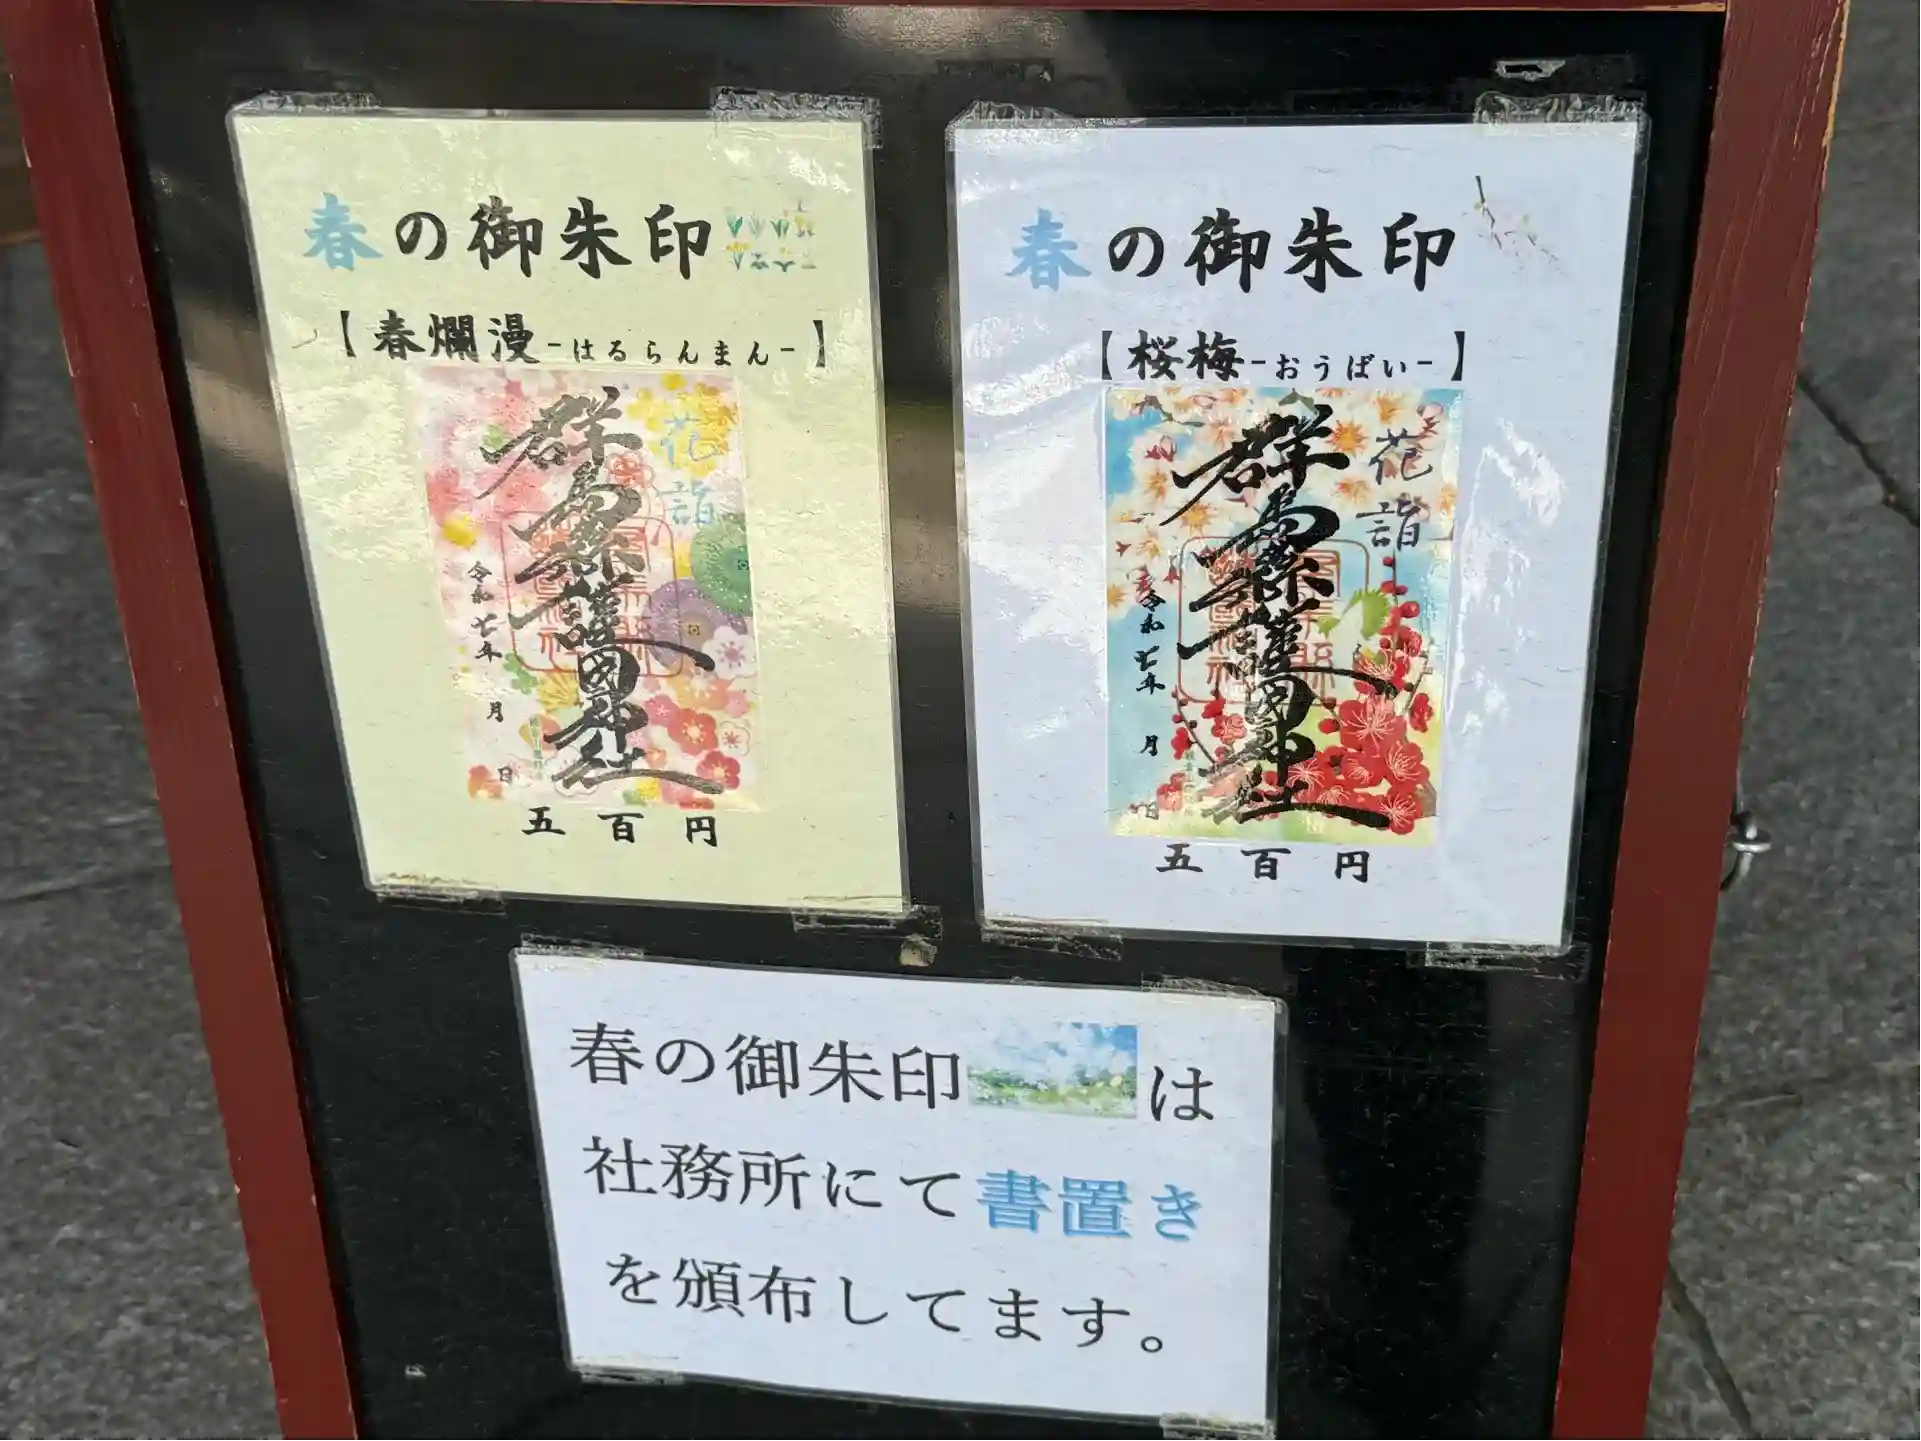 春の御朱印
【春爛漫-はるらんまん-】
花詣
群馬縣護國神社
令和七年 月 日
五百円
春の御朱印
【桜梅-おうばい-】
花詣
群馬縣護國神社
令和七年 月 日
五百円
春の御朱印は
社務所にて書置き
を頒布してます。